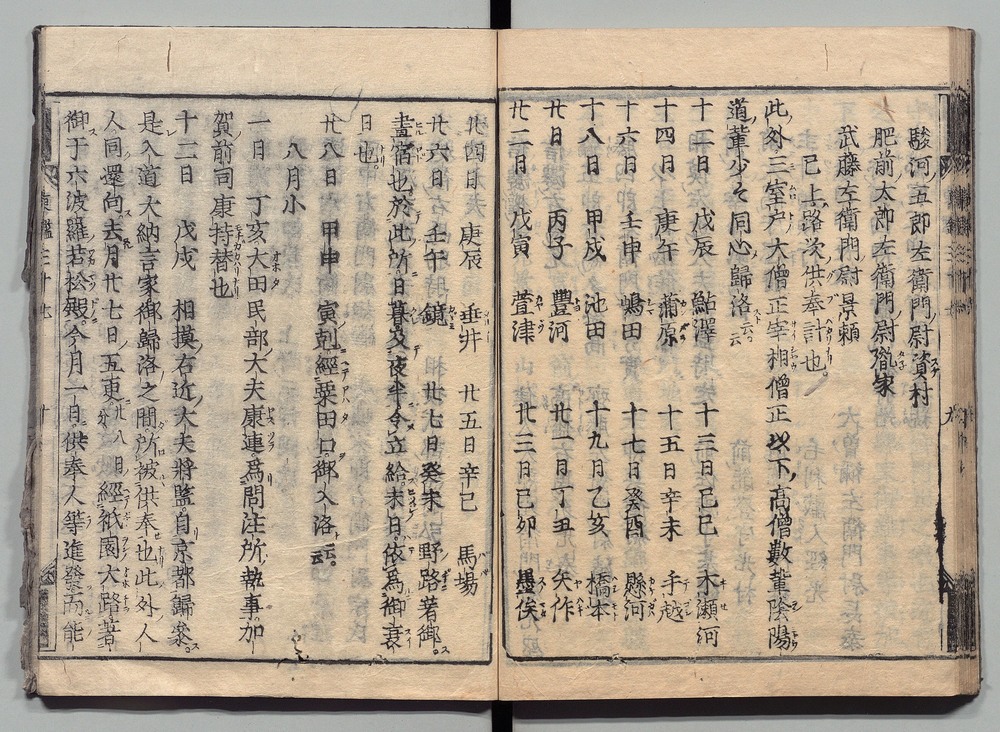 駿河五郎左衛門尉資村
肥前太郎左衛門尉胤家
武藤左衛門尉景頼
已上路次供奉計也。
此外三室戸大僧正宰相僧正以下、高僧數輩陰陽
道輩少々同心歸洛云云
十二日 戊辰 鮎澤 十三日己巳 木瀬河
十四日 庚午 蒲原 十五日辛未 手越
十六日 壬申 嶋田 十七日癸酉 懸河
十八日 甲戌 池田 十九日乙亥 橋本
廿日 丙子 豐河 廿一日丁丑 矢作
廿二日 戊寅 萱津 廿三日己卯 墨俣
廿四日 庚辰 垂井 廿五日辛巳 馬場
廿六日 壬午 鏡 廿七日癸未 野路著御。
晝宿也於此所日暮及夜半令立給。末日。依爲御衰
日也。
廿八日 甲申 寅剋經粟田口御入洛云云。
八月小
一日 丁亥大田民部大夫康連爲問注所執事加
賀前司康持替也
十二日 戊戌 相摸右近大夫將監。自京都歸參。
是入道大納言家御歸洛之間。所被供奉也此外人
人同還向去月廿七日五更廿八日經祇園大路著
御于六波羅若松殿今月一日供奉人等進發而能
東鑑三十七
九
十